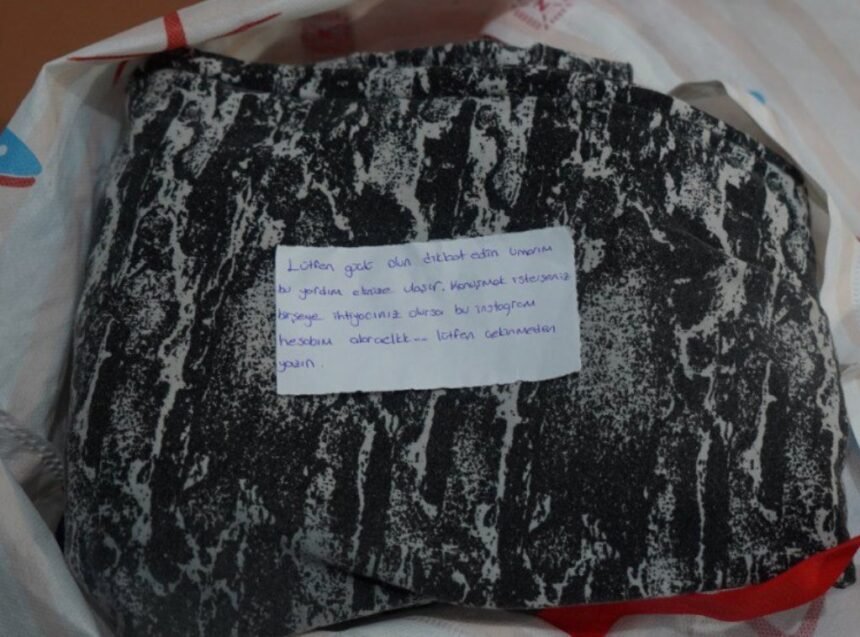 Lütfen güçlü olun dikkat edin umarım
bu yardım elinize ulaşır. Konuşmak isterseniz
birşeye ihtiyacınız olursa bu instagram
hesabım alaraclkk-- lütfen çekinmeden
yazın.